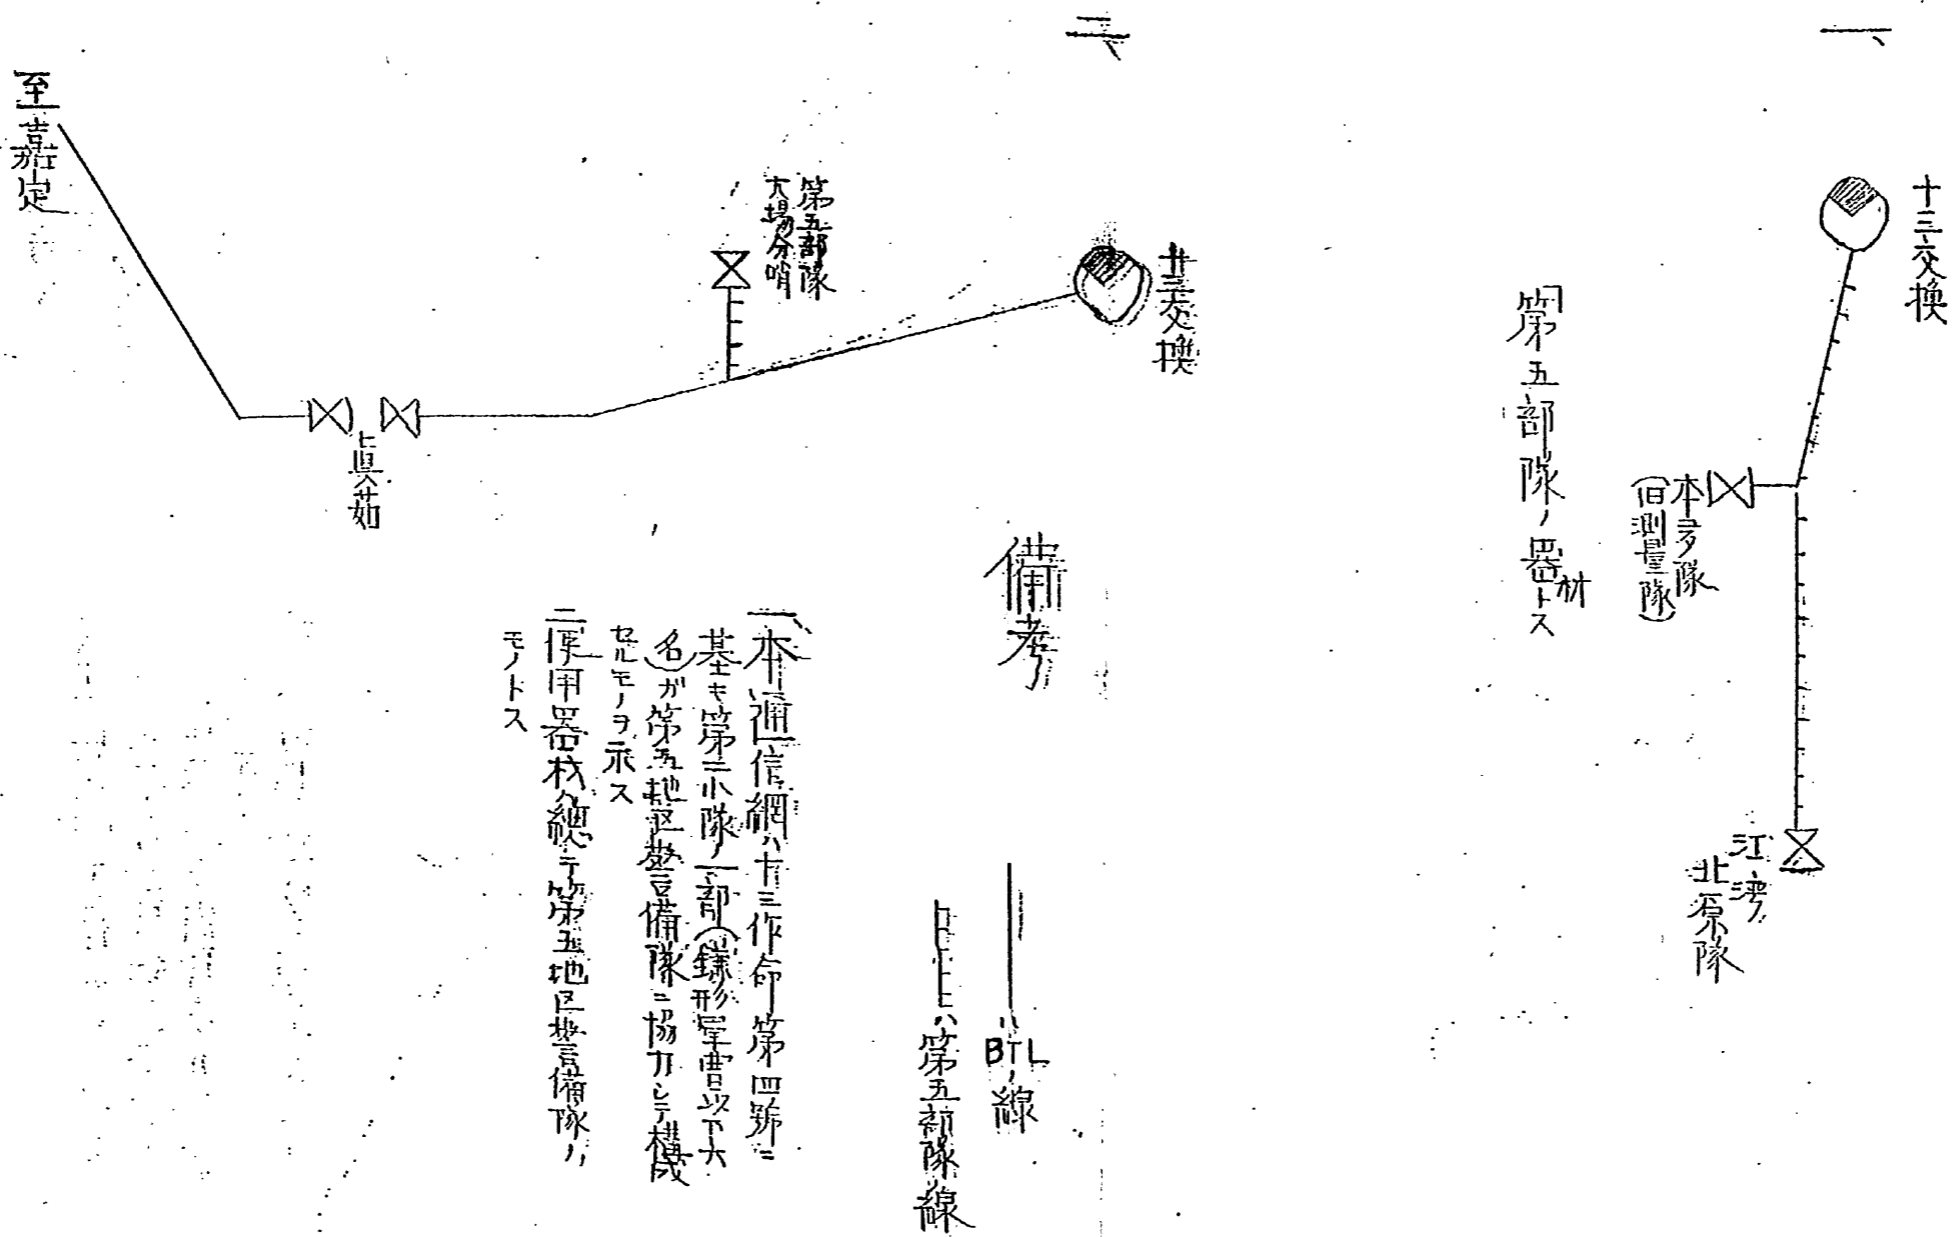 一、
十三交換
本多隊
(旧測量隊)
江湾
北原隊
「第五部隊ノ器材トス
二、
廿三交換
第五部隊
大場分哨
上真茹
至嘉定
備考
ハBTLノ線
ハ第五部隊ノ線
一、本通信網ハ十三作命第四號ニ
基キ第三小隊ノ一部(鎌形軍曹以下六
名)ガ第五地区警備隊ニ協力シテ構成
セルモノヲ示ス
二、使用器材ハ總テ第五地区警備隊ノ
モノトス